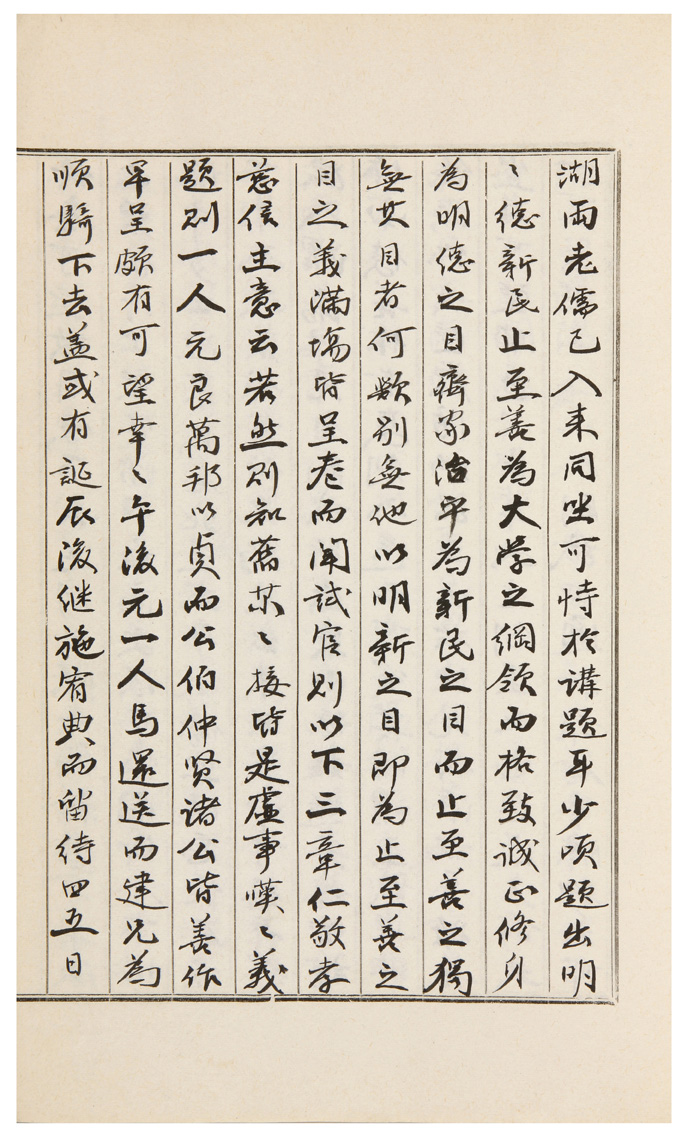 湖南老儒已入来同坐可恃於講題耳少頃題出明
〻德新民止至善為大学之綱領而格致誠正修身
為明德之目齊家治平為新民之目而止至善之獨
無其目者何歟別無他以明新之目即為止至善之
目之義滿場皆呈卷而聞試官則以下三章仁敬孝
慈信主意云若然則知舊某〻接皆是虛事嘆〻義
題則一人元良萬邦以貞而公伯仲贤諸公皆善作
早呈頗有可望幸〻午後元一人馬還送而建兄為
順騎下去盖或有誕辰後继施宥典而留待四五日